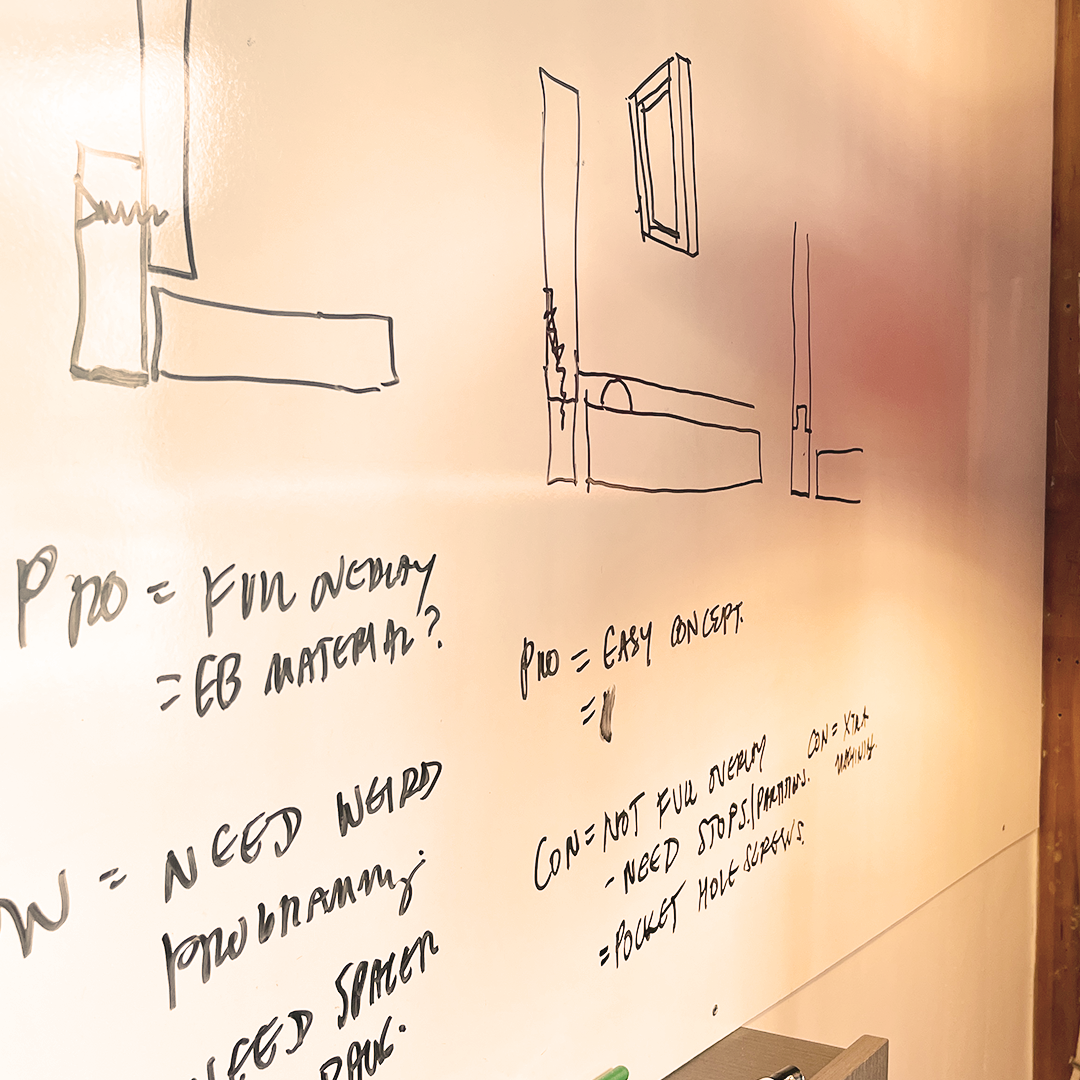 PRO = FULL OVERLAY
= EB MATERIAL?
= NEED WEIRD
PROGRAMMING.
NEED SPACER
PRO = EASY CONCEPT.
=
CON = NOT FULL OVERLAY
- NEED STOPS/PARTITIONS.
= POCKET HOLE SCREWS.
CON = XTRA